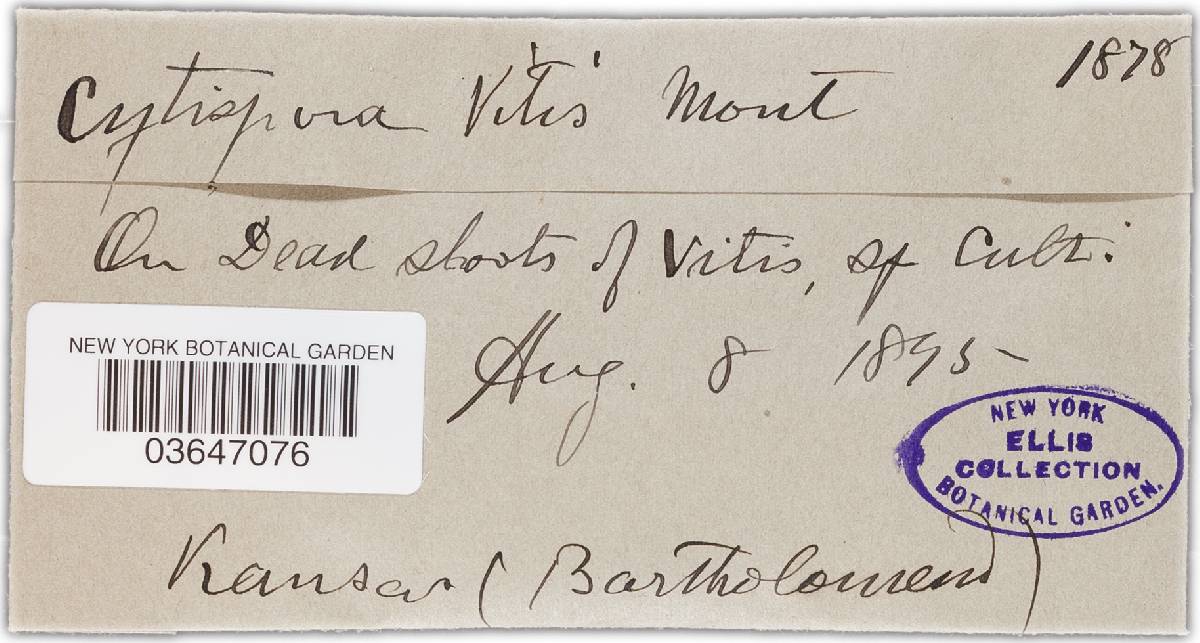 1878
Cytispora Vitis Mont
On Dead shoots of Vitis, sp Cult.
Aug. 8 1895
NEW YORK BOTANICAL GARDEN
03647076
NEW YORK
ELLIS
COLLECTION
BOTANICAL GARDEN.
Kansas (Bartholomew)